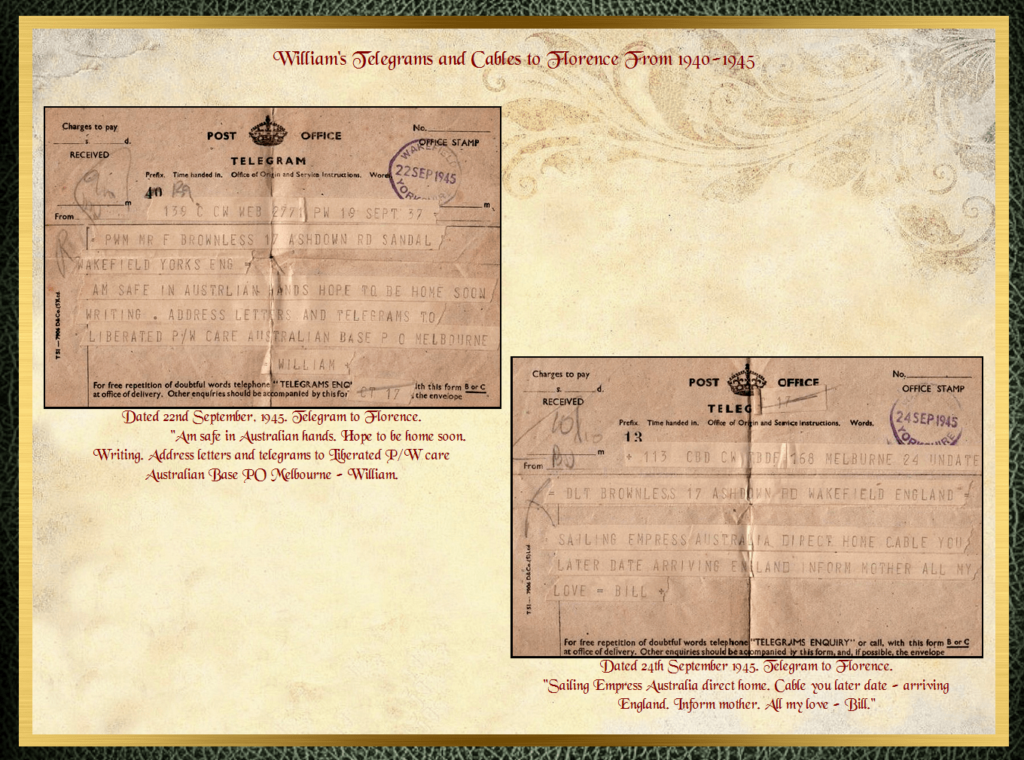 William's Telegrams and Cables to Florence From 1940-1945
Charges to pay
s. d.
RECEIVED
POST OFFICE
TELEGRAM
No.
OFFICE STAMP
WAKEFIELD
22 SEP 1945
YORKSHIRE
Prefix. Time handed in. Office of Origin and Service Instructions. Words.
40
m
From
m
135 C CW WEB 2971 PW 19 SEPT 37
PWM MR F BROWNLESS 17 ASHDOWN RD SANDAL
WAKEFIELD YORKS ENG =
AM SAFE IN AUSTRLIAN HANDS HOPE TO BE HOME SOON
WRITING . ADDRESS LETTERS AND TELEGRAMS TO
LIBERATED P/W CARE AUSTRALIAN BASE P O MELBOURNE
WILLIAM
For free repetition of doubtful words telephone "TELEGRAMS ENQ
ith this form B or C
at office of delivery. Other enquiries should be accompanied by this for
CT 17
, the envelope
Dated 22nd September. 1945. Telegram to Florence.
"Am safe in Australian hands. Hope to be home soon.
Writing. Address letters and telegrams to Liberated P/W care
Australian Base PO Melbourne - William.
Charges to pay
s. d.
RECEIVED
POST OFFICE
TELEG
17
No.
OFFICE STAMP
24 SEP 1945
YORKSHIRE
Prefix. Time handed in. Office of Origin and Service Instructions. Words.
13
m
From
+ 113 CBD CW 158 MELBURNE 24 UNDATE
= DLT BROWNLESS 17 ASHDOWN RD WAKEFIELD ENGLAND =
SAILING EMPRESS AUSTRALIA DIRECT HOME CABLE YOU
LATER DATE ARRIVING ENGLAND INFORM MOTHER ALL MY
LOVE = BILL +
For free repetition of doubtful words telephone "TELEGRAMS ENQUIRY" or call, with this form B or C
at office of delivery. Other enquiries should be accompanied by this form, and, if possible, the envelope
Dated 24th September 1945. Telegram to Florence.
"Sailing Empress Australia direct home. Cable you later date - arriving
England. Inform mother. All my love - Bill."